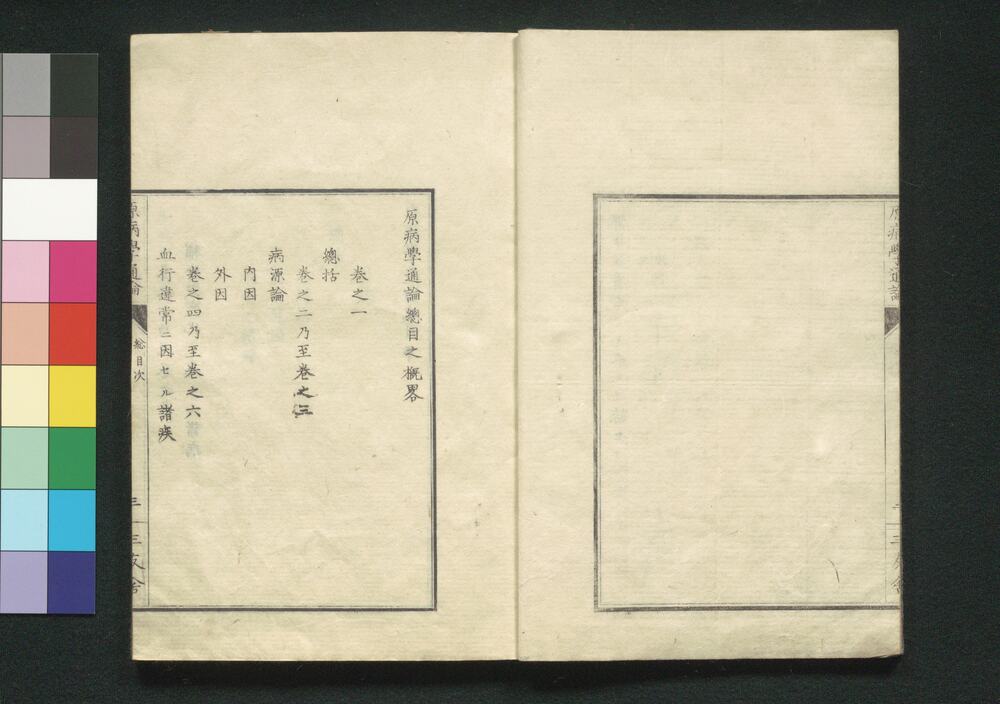 原病學通論
三友舍
原病學通論總目之概畧
卷之一
總括
卷之二乃至卷之三
病源論
內因
外因
卷之四乃至卷之六
血行違常ニ因セル諸疾
原病學通論
総目次
三友舍